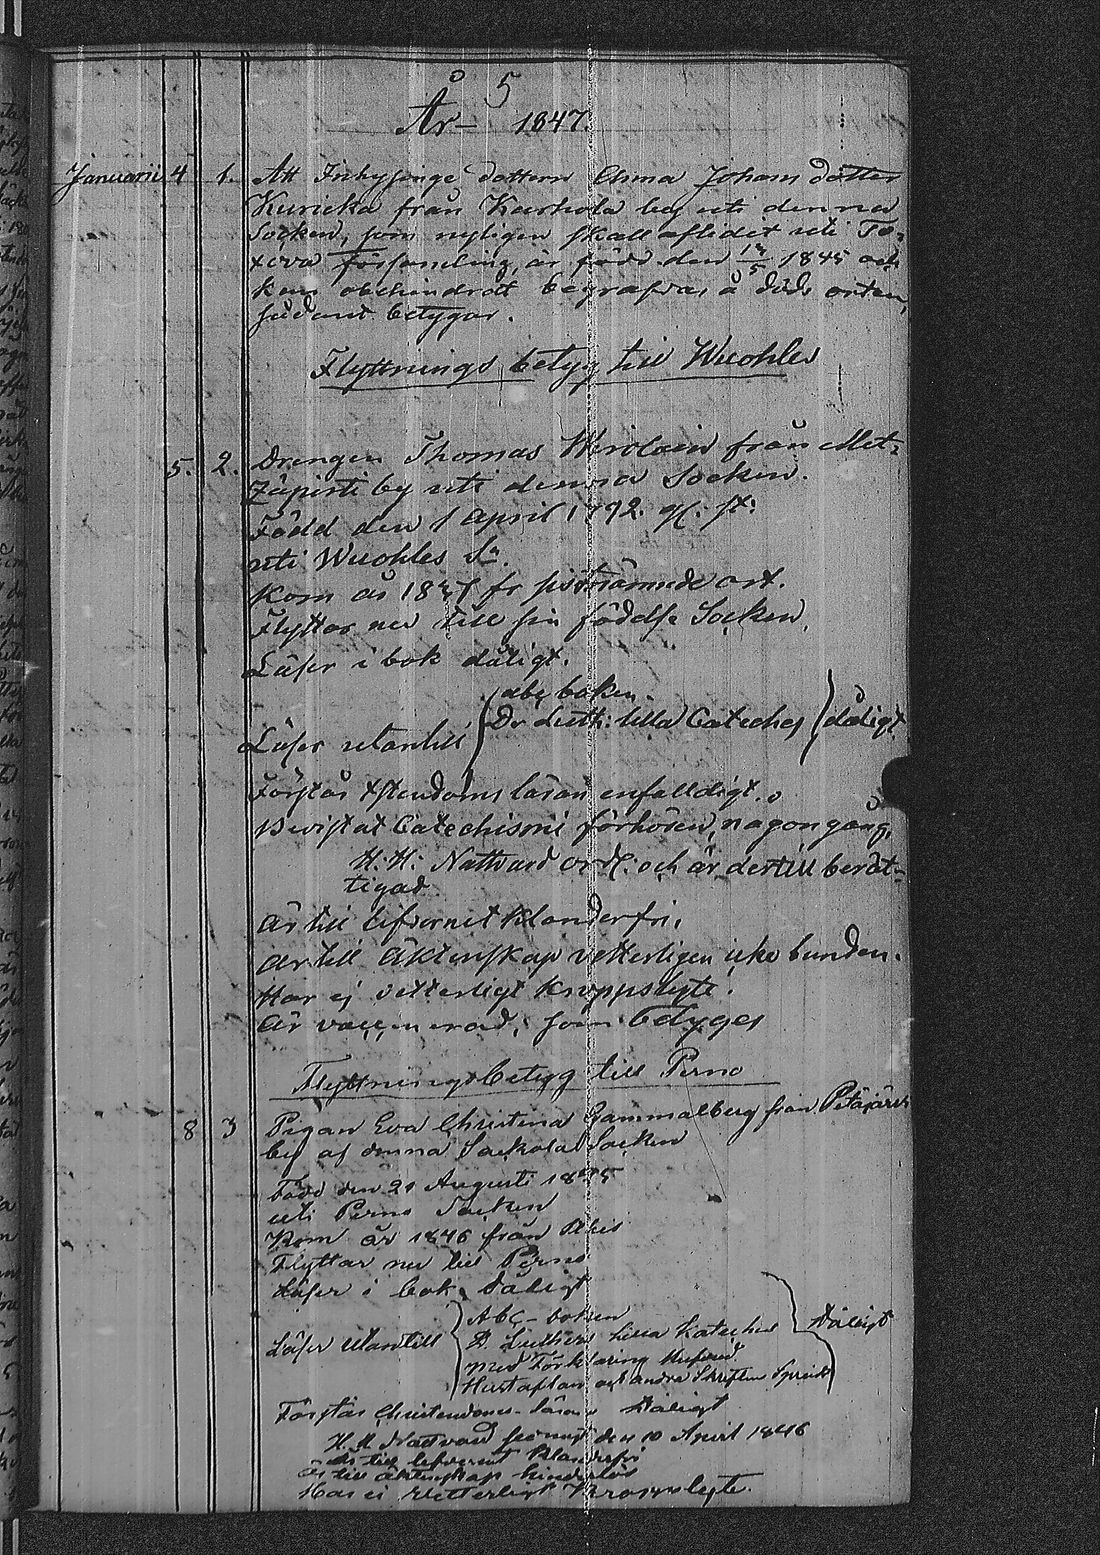 5
År 1847.
Januarii 4 1. Att Inhysinge dottern Anna Johans dotter
Kuricka från Karhola by uti denna
Socken, som nyligen skall aflidit uti
församling, är född den 1845 och
kan obehindradt begrafvas å döds orten,
sådant betygar.
Flyttnings betyg till Wuohles
5. 2. Drengen Thomas Wirolain från Met-
zäpirti by uti denna Socken.
Född den 1 April 1792. gl. st:
uti Wuohles Sn.
Kom år 1837 fr sistnämnde ort.
Flyttar nu till sin födelse Socken.
Läser i bok dåligt.
abc boken.
Läser utantill Dr Luth: lilla Cateches dåligt
Förstår Xstendoms läran enfalldigt.
Bevistat Catechismi förhören någon gång.
H. H: Nattvard ordl: och är dertill berät-
tigad.
är till lefvernet klanderfri,
är till Äktenskap vetterligen icke bunden.
Har ej vetterligt kroppslyte.
är vaccinerad, som betygas
Flyttningsbetyg till Perno
8 3 Pigan Eva Christina Gammalberg från Petäjärvi
by af denna Sackola Socken
Född den 21 Augusti 1825
uti Perno Socken
Kom år 1846 från
Flyttar nu till Perno
Läser i bok dåligt
Abc-boken
Läser utantill D. Luthers lilla Kateches dåligt
med Förklaring
Hustaflan och andra Skriftens Språk
Förstår Christendoms-läran dåligt
H. H. Nattvard senast den 10 April 1846
är till lefvernet klanderfri
är till äktenskap hinderlös
Har ei vetterligt Kroppslyte.